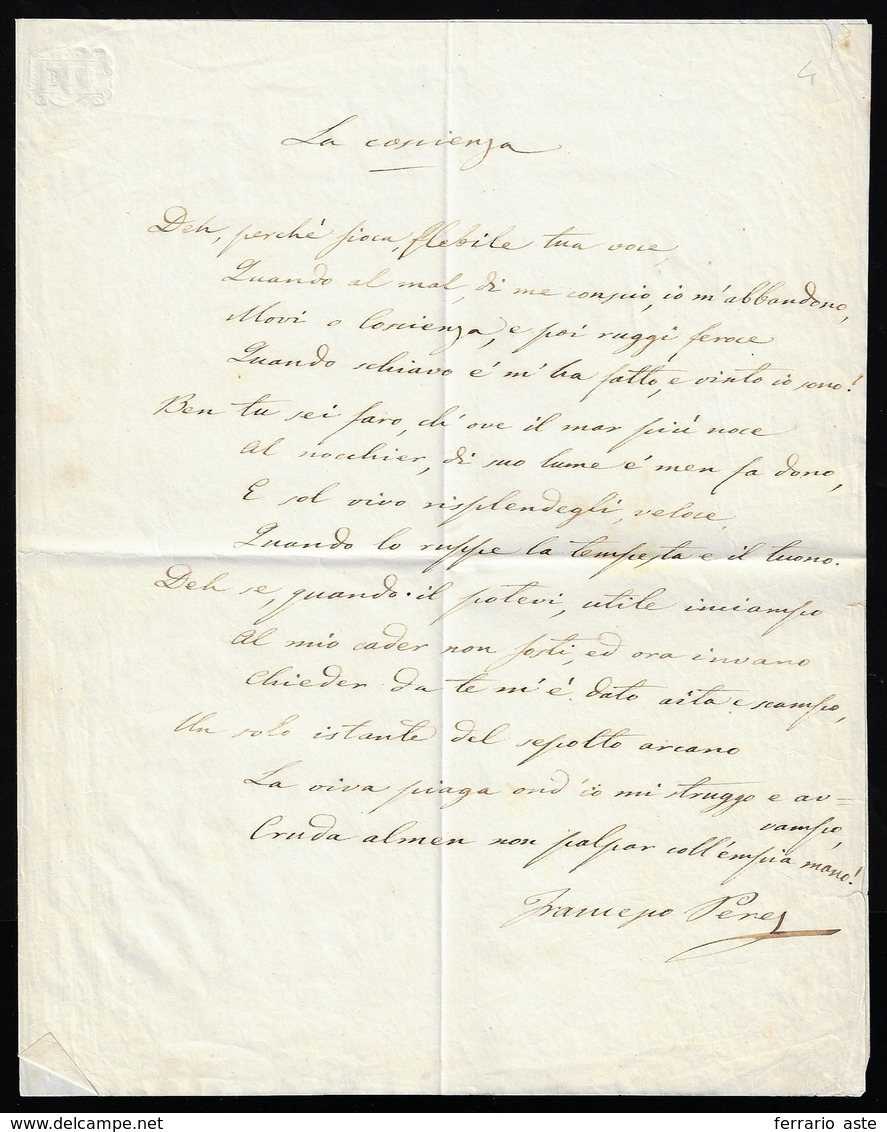 4
La coscienza
Deh, perchè fioca, flebile tua voce,
Quando al mal, di me conscio, io m'abbandono,
Movi o Coscienza, e poi ruggi feroce
Quando schiavo é m'ha fatto, e vinto io sono!
Ben tu sei faro, ch'ove il mar più noce
Al nocchier, di suo lume é men fa dono,
E sol vivo risplendegli, veloce,
Quando lo ruppe la tempesta e il tuono.
Deh se, quando il potevi, utile inciampo
Al mio cader non fosti, ed ora invano
Chieder da te m'é dato aita e scampo,
Un solo istante del sepolto arcano
La viva piaga ond'io mi struggo e av=
vampo,
Cruda almen non palpar coll'empia mano!
Francesco Perez
ferrario aste